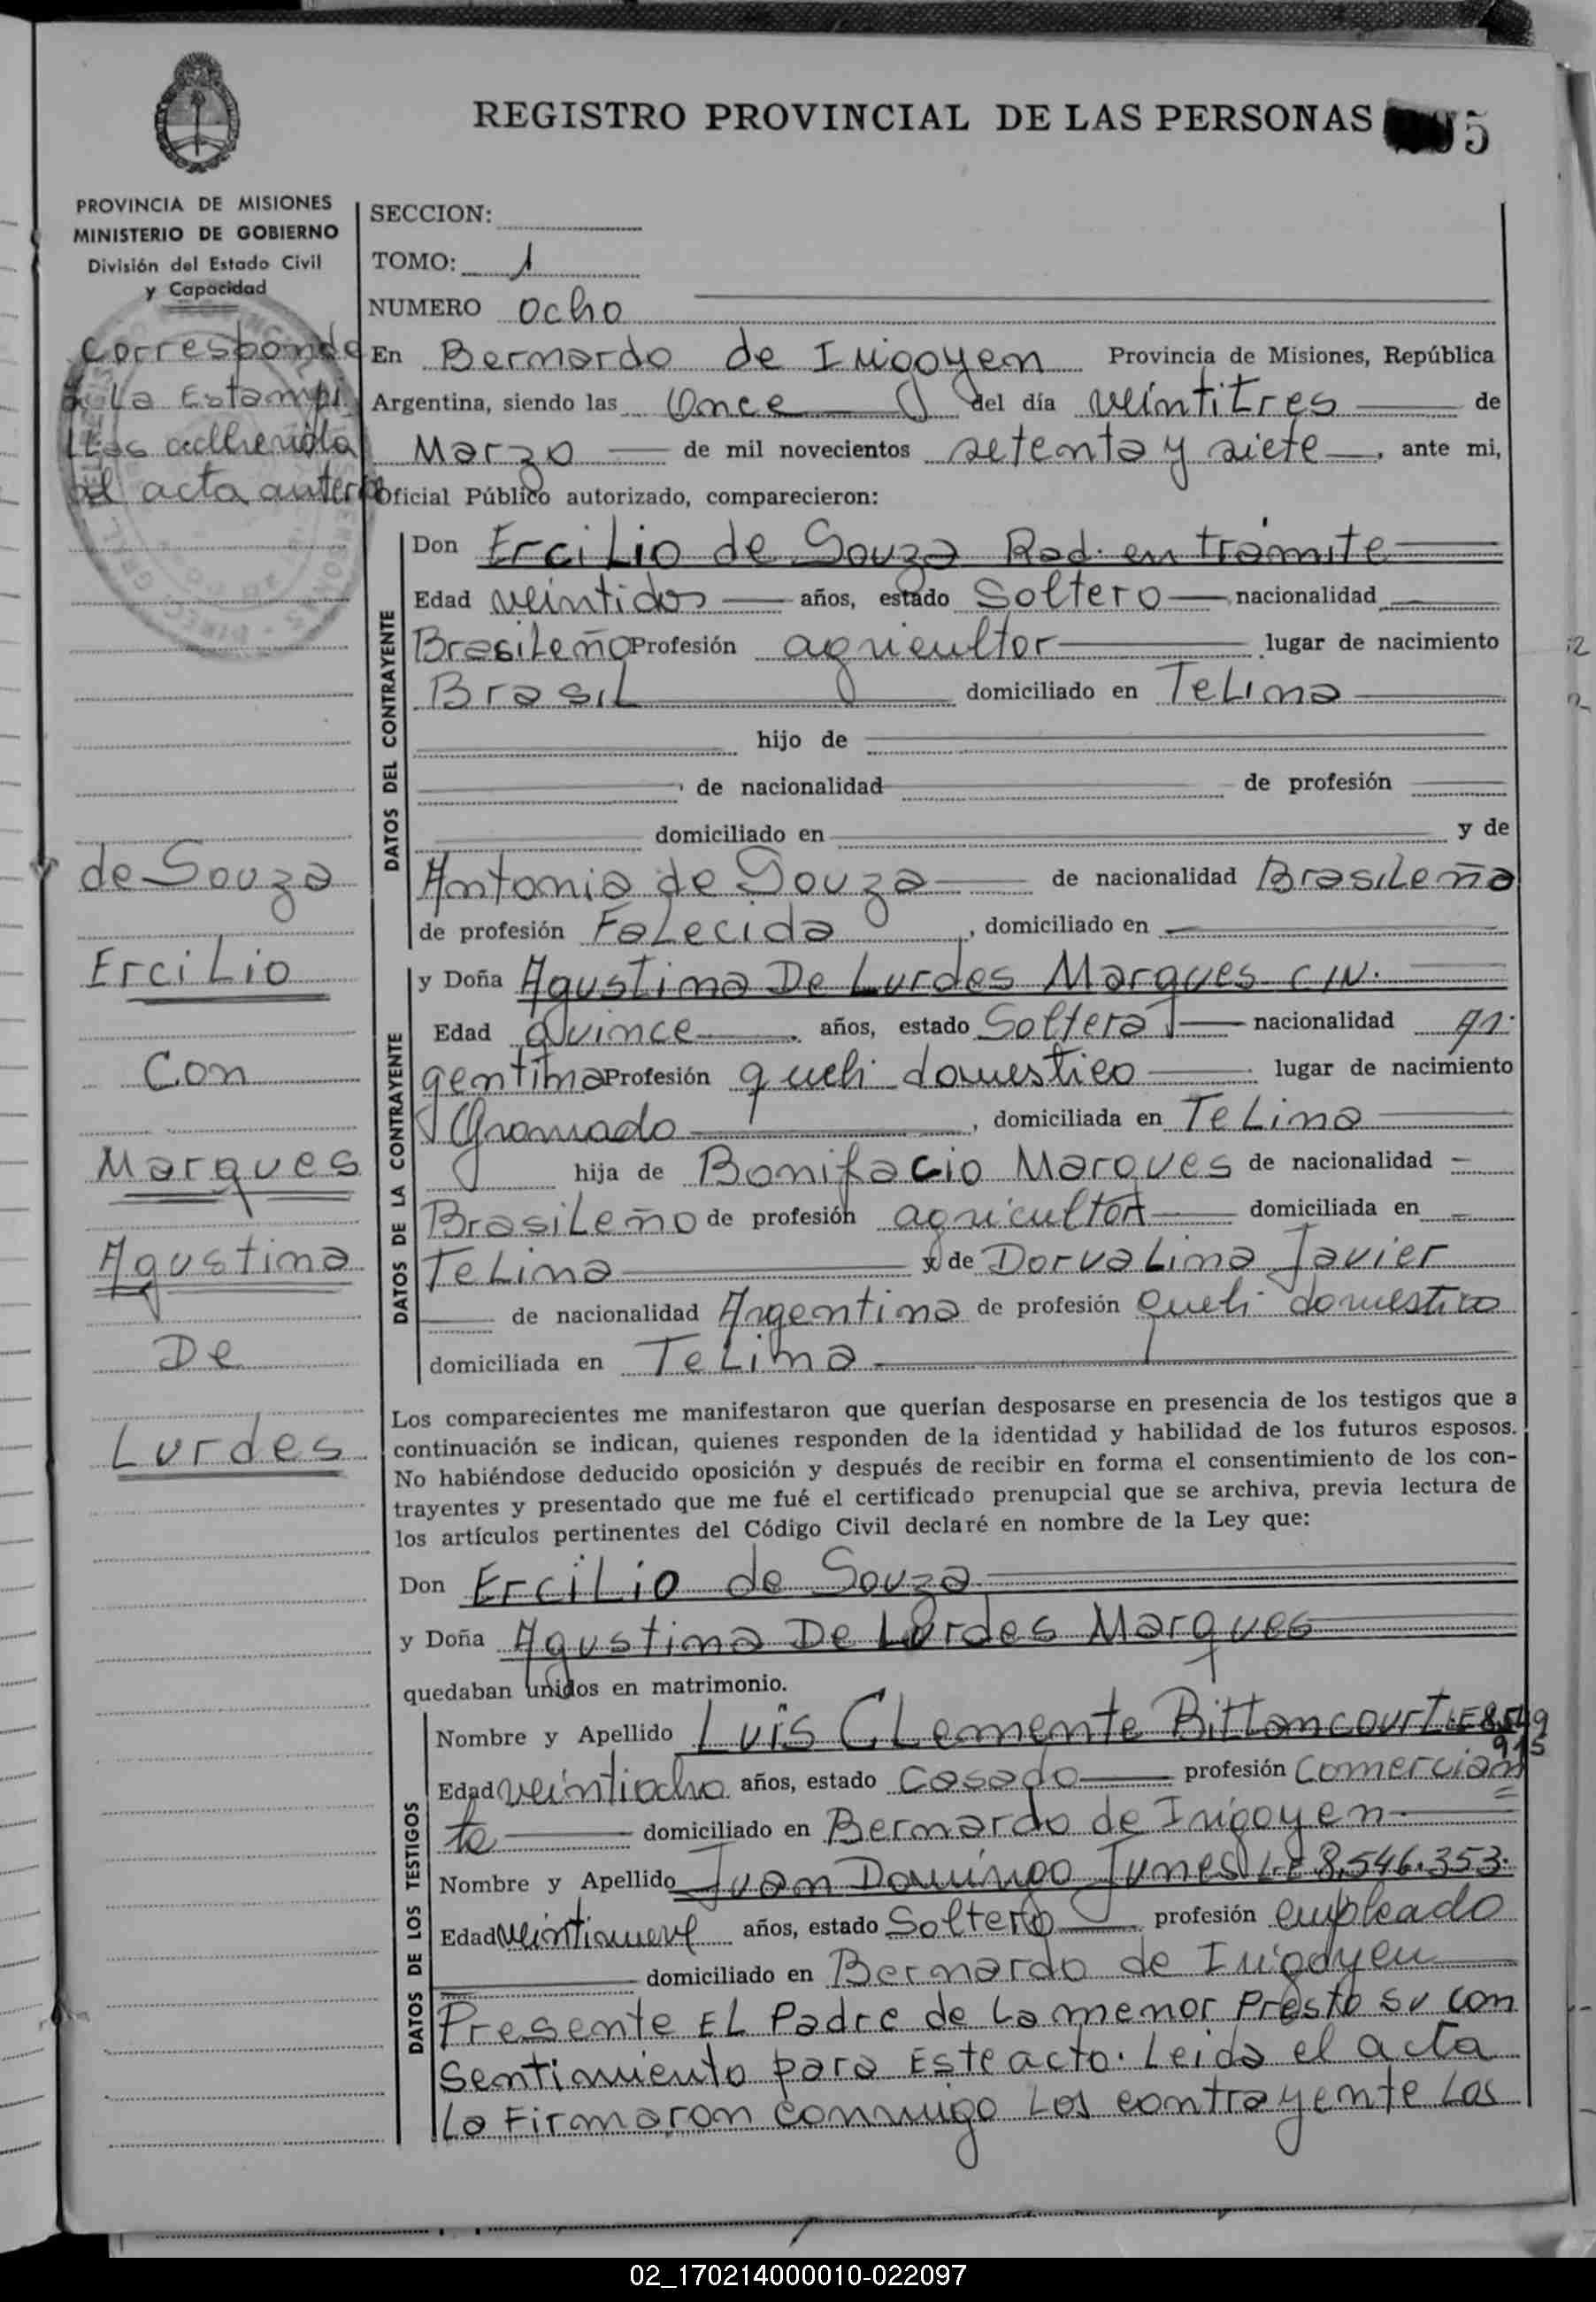 REGISTRO PROVINCIAL DE LAS PERSONAS 5
PROVINCIA DE MISIONES
MINISTERIO DE GOBIERNO
División del Estado Civil
y Capacidad
Corresponde
a La Estampi
llas adherida
al acta anterior
de Souza
Ercilio
Con
Marques
Agustina
De
Lurdes
SECCION:
TOMO: 1
NUMERO ocho
En Bernardo de Irigoyen Provincia de Misiones, República
Argentina, siendo las Once del día veintitres de
Marzo de mil novecientos setenta y siete, ante mi,
Oficial Público autorizado, comparecieron:
DATOS DEL CONTRAYENTE
Don Ercilio de Souza Rad. en tramite
Edad veintidos años, estado Soltero nacionalidad
Brasileño Profesión agricultor lugar de nacimiento
Brasil domiciliado en Telina
hijo de
de nacionalidad de profesión
domiciliado en y de
Antonia de Souza de nacionalidad Brasileña
de profesión Falecida, domiciliado en
DATOS DE LA CONTRAYENTE
y Doña Agustina De Lurdes Marques C/N.
Edad Quince años, estado Soltera nacionalidad Ar
gentina Profesión queh. domestico lugar de nacimiento
Gramado, domiciliada en Telina
hija de Bonifacio Marques de nacionalidad
Brasileño de profesión agricultor domiciliada en
Telina y de Dorvalina Javier
de nacionalidad Argentina de profesión queh. domestico
domiciliada en Telina
Los comparecientes me manifestaron que querían desposarse en presencia de los testigos que a
continuación se indican, quienes responden de la identidad y habilidad de los futuros esposos.
No habiéndose deducido oposición y después de recibir en forma el consentimiento de los con-
trayentes y presentado que me fué el certificado prenupcial que se archiva, previa lectura de
los artículos pertinentes del Código Civil declaré en nombre de la Ley que:
Don Ercilio de Souza
y Doña Agustina De Lurdes Marques
quedaban unidos en matrimonio.
DATOS DE LOS TESTIGOS
Nombre y Apellido Luis Clemente Bittancourt LE 8.549
915
Edad veintiocho años, estado Casado profesión Comercian
te domiciliado en Bernardo de Irigoyen
Nombre y Apellido Juan Domingo Junes LE 8.546.353.
Edad veintinueve años, estado Soltero profesión empleado
domiciliado en Bernardo de Irigoyen
Presente El Padre de La menor Presto su con
sentimiento para Este acto. Leida el acta
La Firmaron conmigo Los contrayente Los
02_170214000010-022097